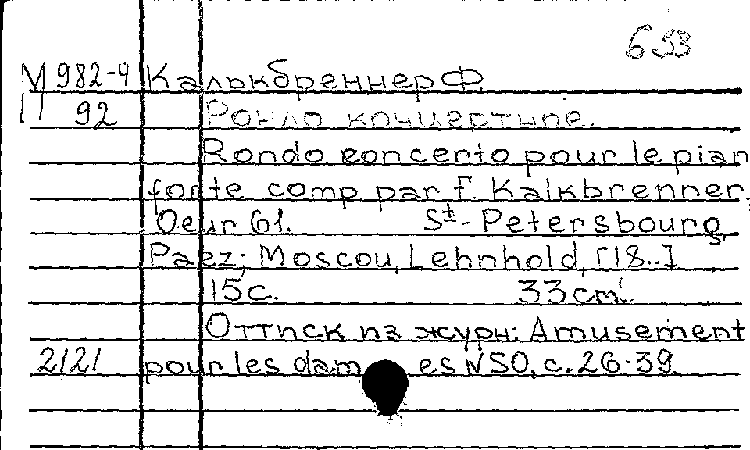 653
М 982-9 Калькбреннер Ф.
П 92 Рондо концертное.
Rondo concerto pour le pian
forte comp par F. Kalkbrenner,
Oeur 61. St-Petersbourg,
Paez; Moscou, Lehnhold, [18..]
15 с. 33 cm.
Оттиск из журн: Amusement
2121 pour les dames N50, с. 26-39.